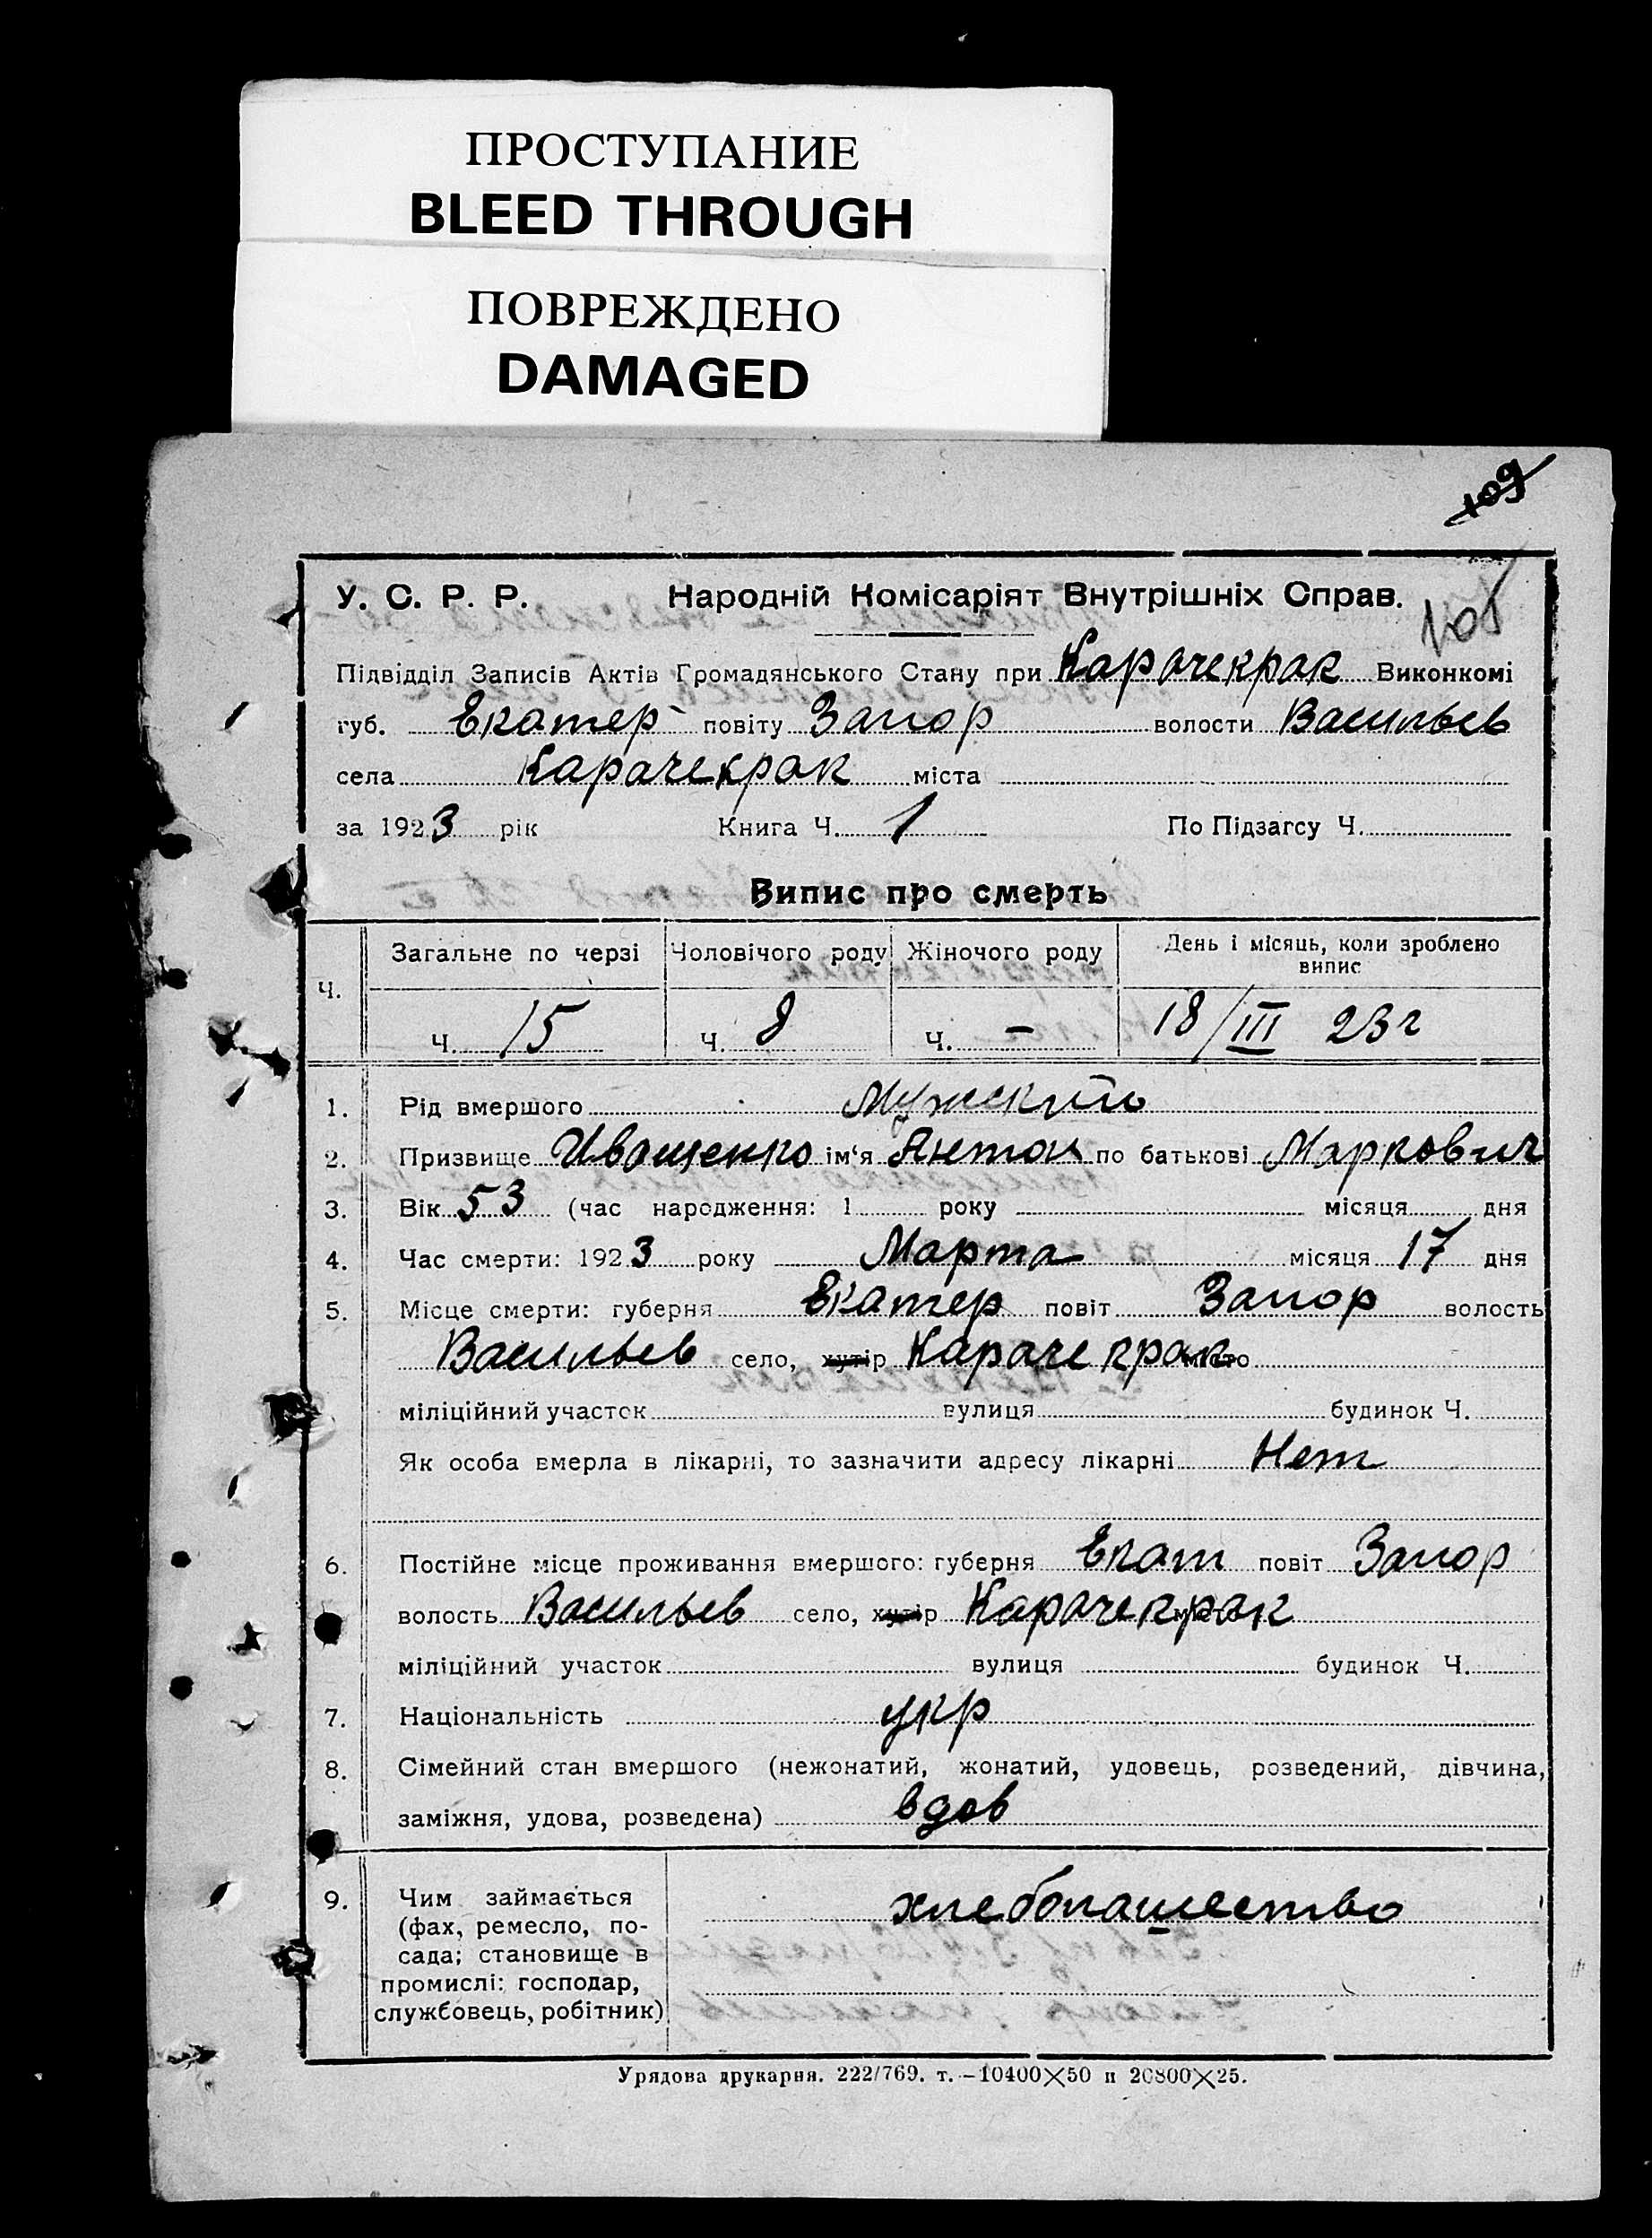 ПРОСТУПАНИЕ
BLEED THROUGH
ПОВРЕЖДЕНО
DAMAGED
109
105
У. С. Р. Р. Народній Комісаріят Внутрішніх Справ.
Підвідділ Записів Актів Громадянського Стану при Карачекрак Виконкомі
губ. Екатер повіту Запор волости Васильев
села Карачекрак міста
за 1923 рік Книга Ч. 1 По Підзагсу Ч.
Випис про смерть
Ч. Загальне по черзі Чоловічого роду Жіночого роду День і місяць, коли зроблено
випис
Ч. 15 Ч. 8 Ч. — 18/III 23 г
1. Рід вмершого Мужский
2. Призвище Иващенко ім'я Антон по батькові Маркович
3. Вік 53 (час народження: 1 року місяця дня
4. Час смерти: 1923 року Марта місяця 17 дня
5. Місце смерти: губерня Екатер повіт Запор волость
Васильев село, хутір Карачекрак місто
міліційний участок вулиця будинок Ч.
Як особа вмерла в лікарні, то зазначити адресу лікарні Нет
6. Постійне місце проживання вмершого: губерня Екат повіт Запор
волость Васильев село, хутір Карачекрак місто
міліційний участок вулиця будинок Ч.
7. Національність укр
8. Сімейний стан вмершого (нежонатий, жонатий, удовець, розведений, дівчина,
заміжня, удова, розведена) вдов
9. Чим займається хлебопашество
(фах, ремесло, по-
сада; становище в
промислі: господар,
службовець, робітник)
Урядова друкарня. 222/769. т. —10400×50 п 20800×25.